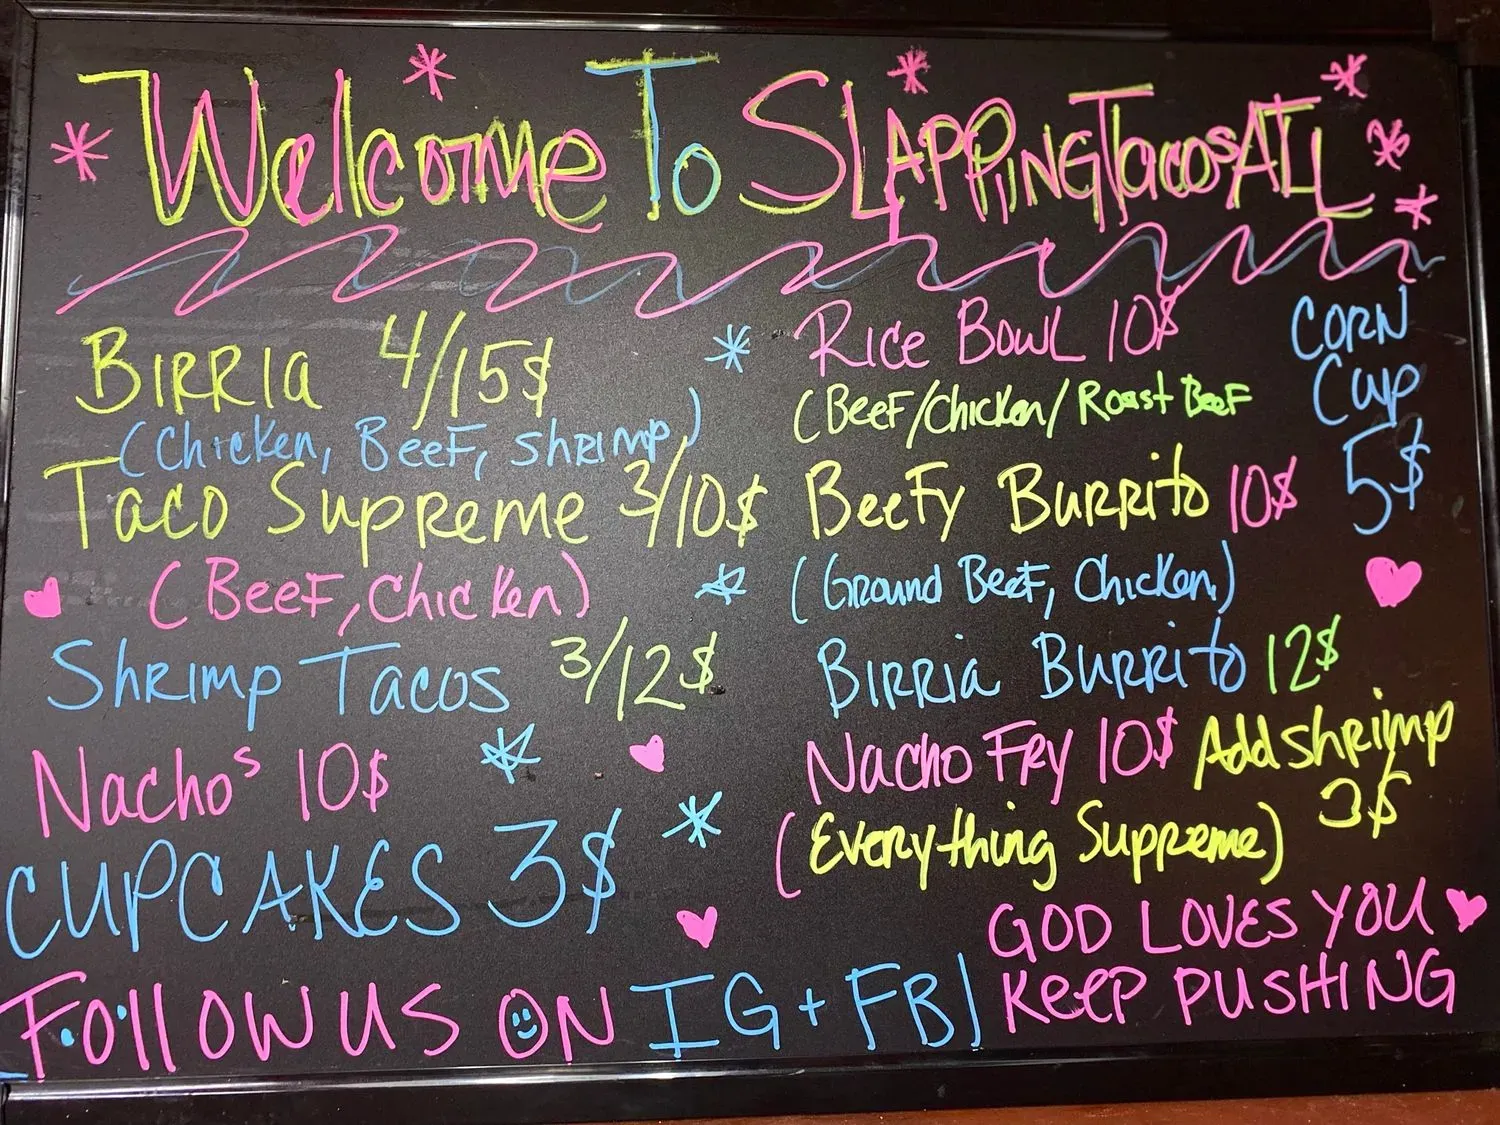 Welcome To SLAPPINGTacosATL
BIRRIa 4/15$
(Chicken, BeeF, shrimp)
Taco Supreme 3/10$
(BeeF, Chicken)
Shrimp Tacos 3/12$
Nachos 10$
CUPCAKES 3$
Rice Bowl 10$
(BeeF/Chicken/Roast BeeF
BeeFy Burrito 10$
(Ground BeeF, Chicken)
Birria Burrito 12$
Nacho Fry 10$ Add shrimp
3$
(Everything Supreme)
CORN
Cup
5$
GOD LOVES YOU
KeeP PUSHING
Follow us ON IG + FB)